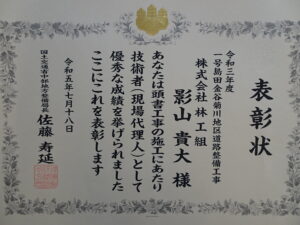 表彰状
令和三年度
一号島田金谷菊川地区道路整備工事
株式会社林工組
影山貴大 様
あなたは頭書工事の施工にあたり
技術者（現場代理人）として
優秀な成績を挙げられました
ここにこれを表彰します
令和五年七月十八日
国土交通省中部地方整備局長 佐藤寿延